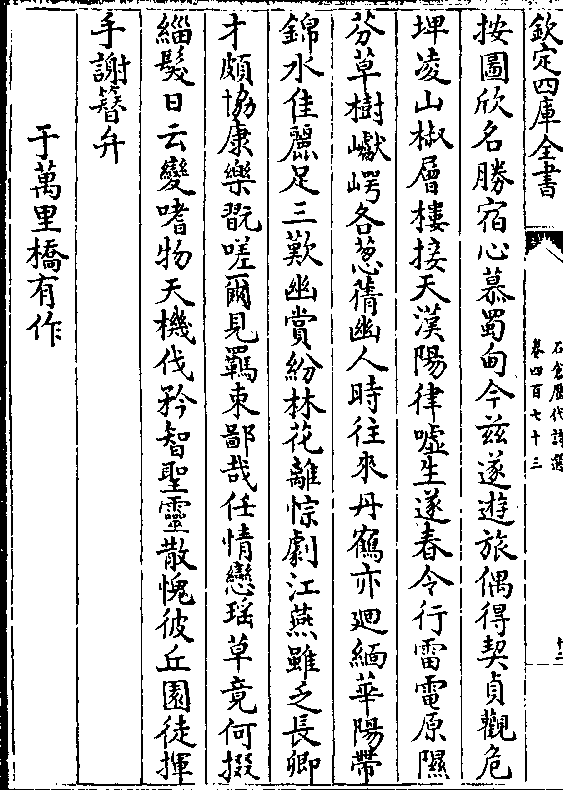 欽定四庫全書
石倉歷代詩選
卷四百七十三
十二
按圖欣名勝宿心慕蜀甸今兹遂遊旅偶得契貞觀危
埤凌山椒層樓接天漢陽律噓生遂春令行雷電原隰
芬草樹巘崿各葱蒨幽人時往來丹鶴亦迴緬華陽帶
錦水佳麗足三歎幽賞紛林花離悰劇江燕雖乏長卿
才頗協康樂翫嗟爾見羈束鄙哉任情戀瑶草竟何掇
緇髮日云變嗜物天機伐矜智聖靈散愧彼丘園徒揮
手謝簪弁
于萬里橋有作